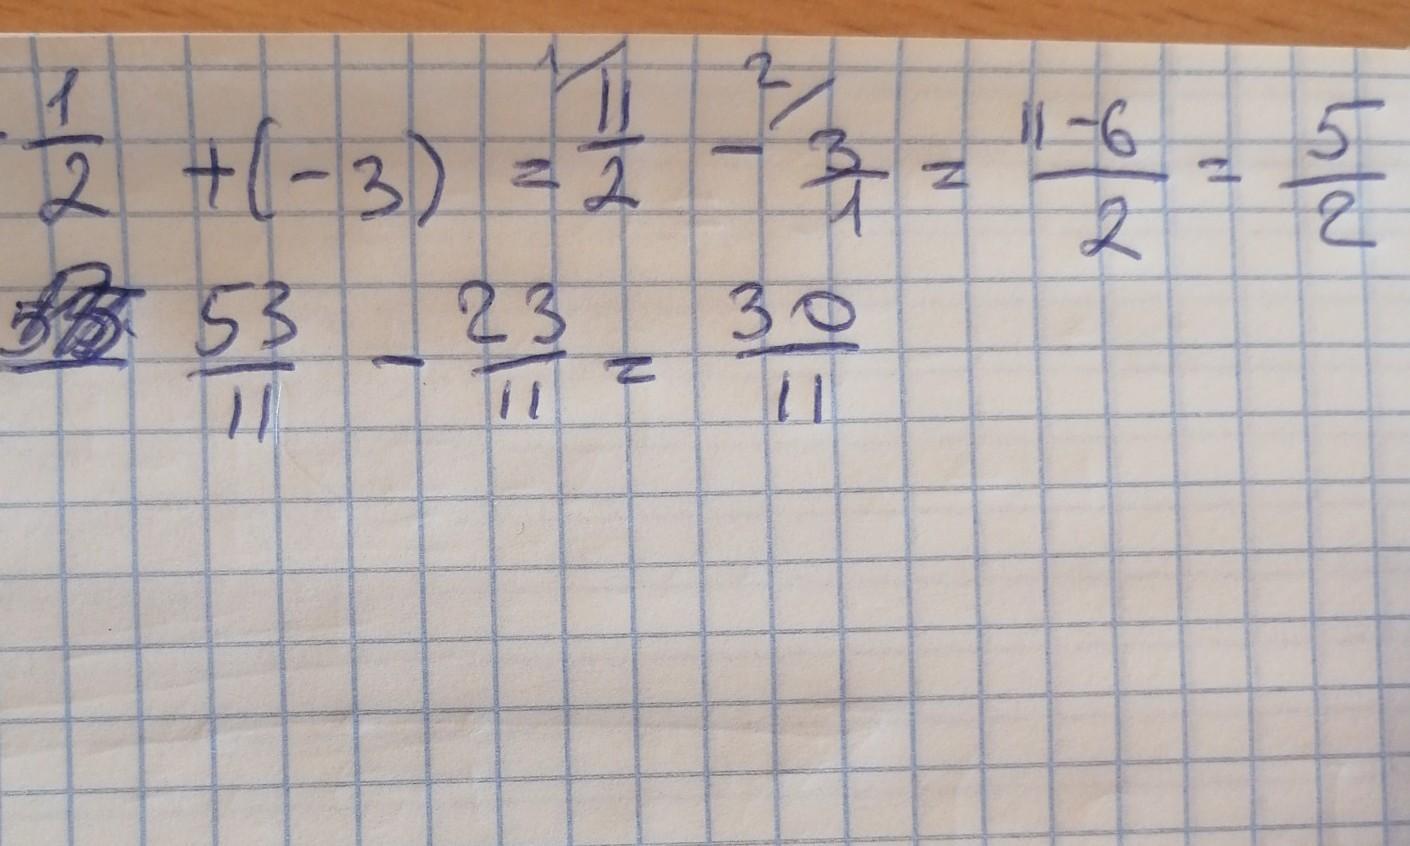 1/2 + (-3) = 1/ 11/2 - 2/ 3/1 = 11-6/2 = 5/2
53/11 - 23/11 = 30/11